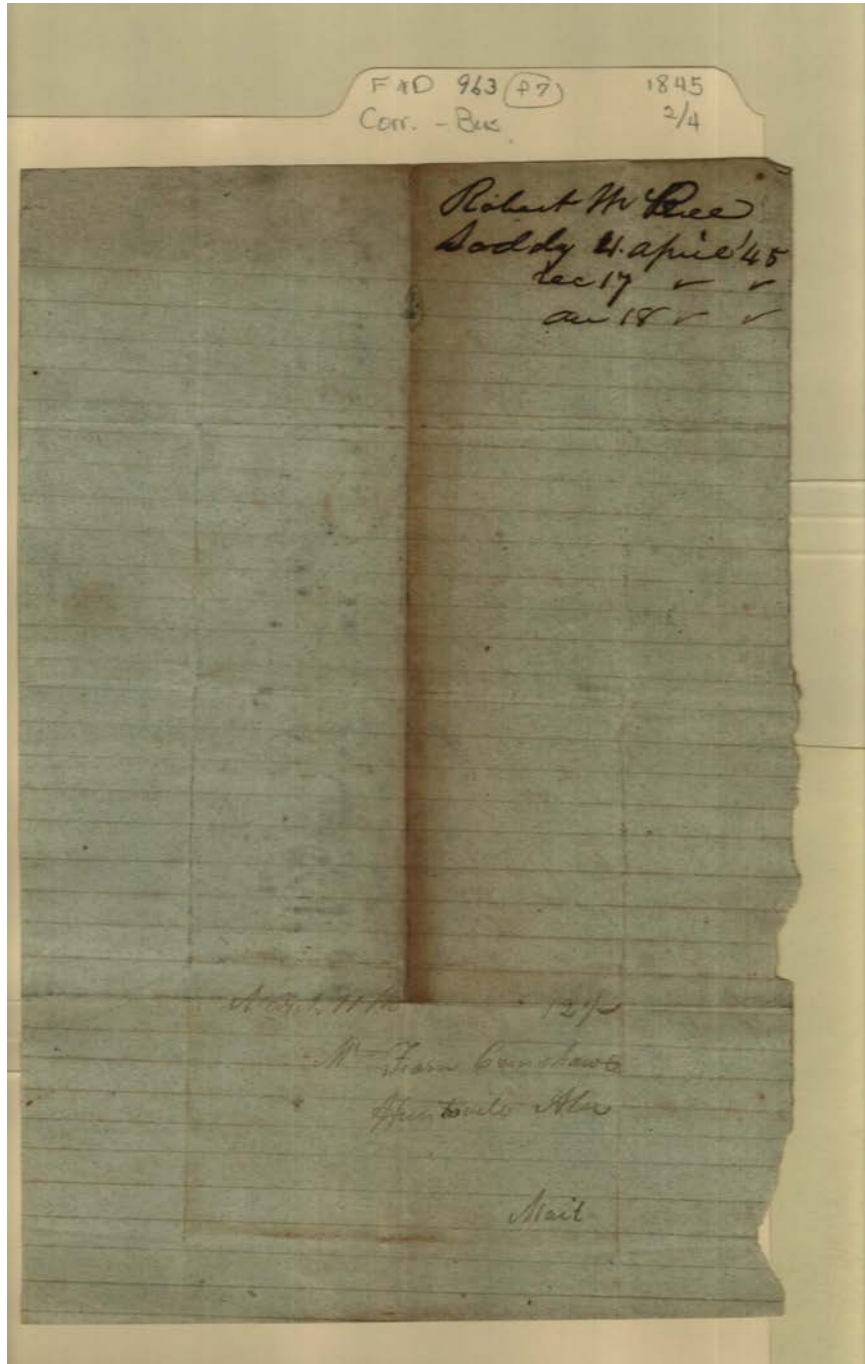 F&D 963 (f7) 1845
Corr. - Bus. 2/4
Robert McRee
Soddy 4. april '45
rec 17 ✓ ✓
an 18 ✓ ✓
12 1/2
Mr Fearn Crenshaw
Huntsville Ala
Mail